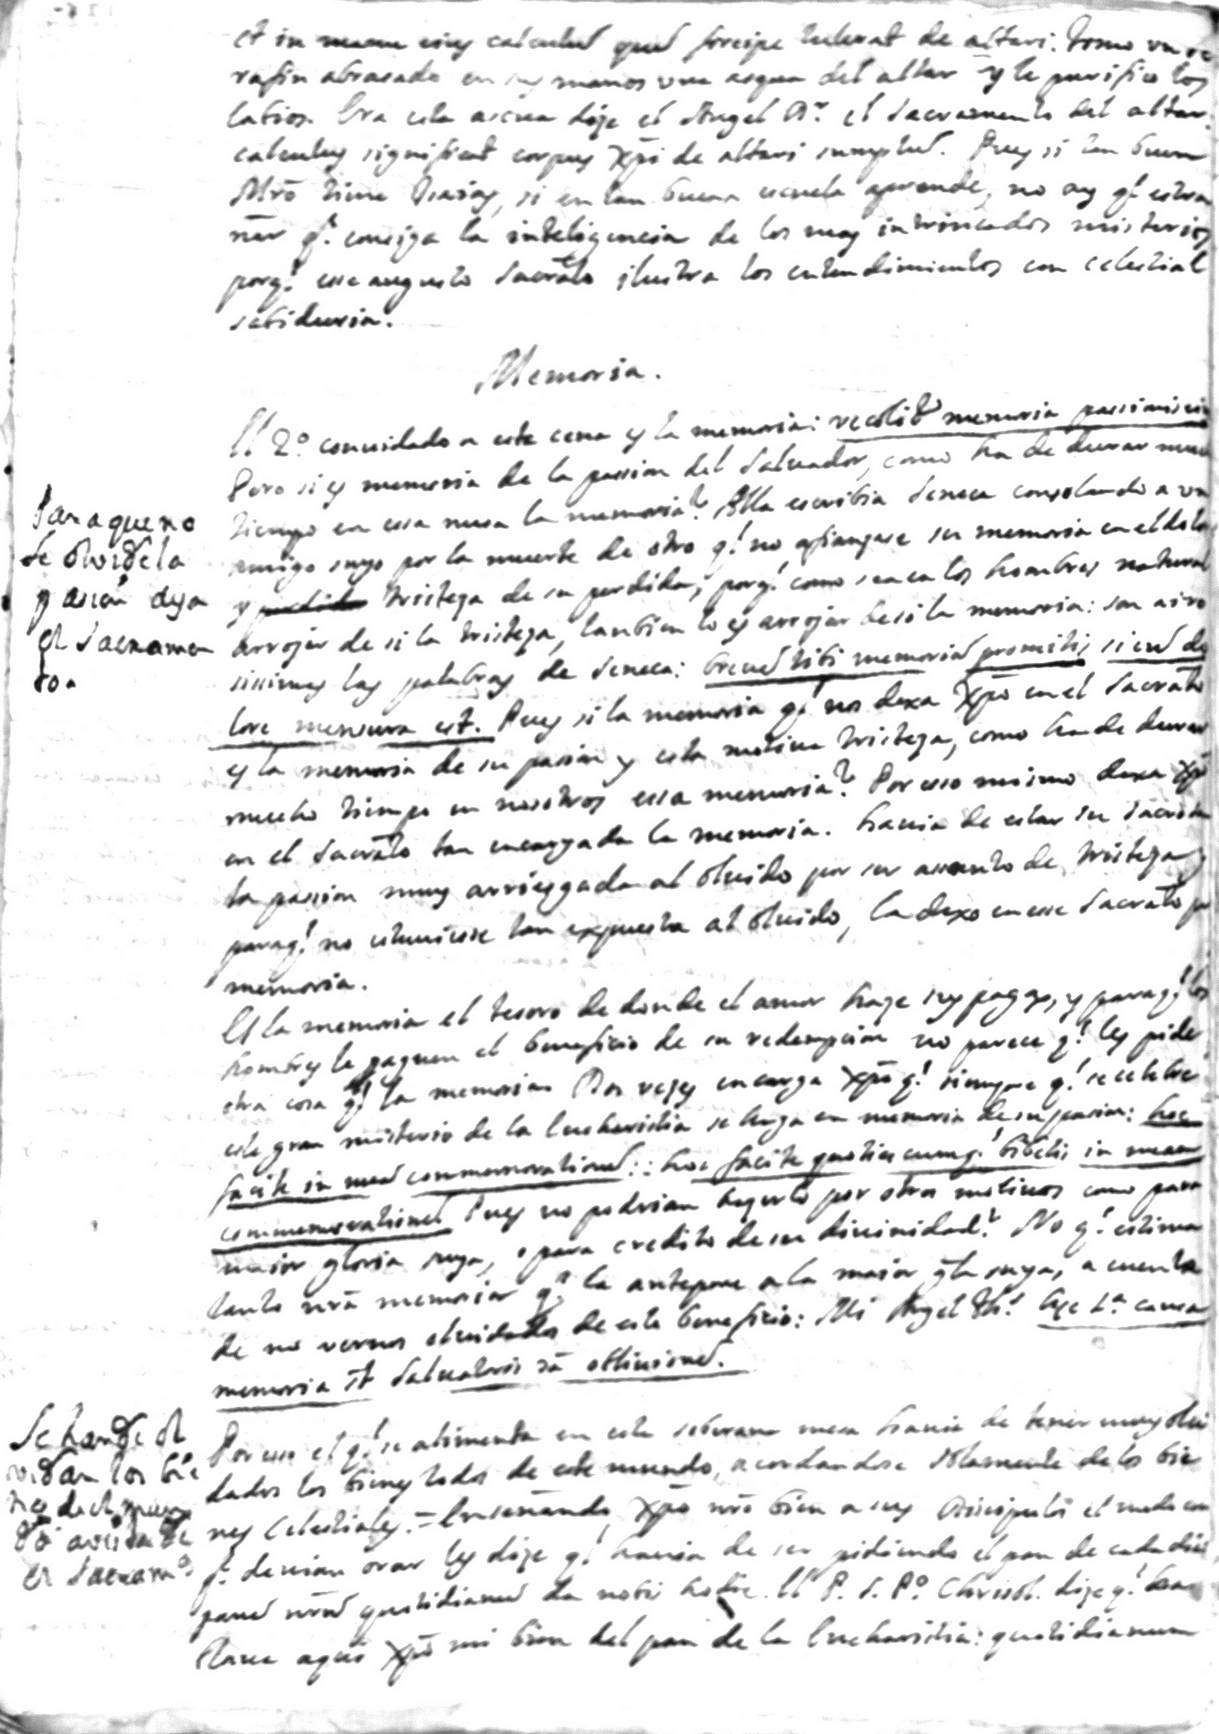 et in manu eius calculus quem forcipe tulerat de altari. Tomo un se
rafin abrasado en sus manos una asqua del altar y le purifico los
labios. Era esta ascua dije el Angel Dr. el Sacramento del altar.
calculus significat corpus Xpi de altari sumptud. Pues si tan buen
Mro tiene Isaias, si en tan buena escuela aprende, no ay q! estra
ñar q! consiga la inteligencia de los mas intrincados misterios,
porq! esse augusto Sacrãto ilustra los entendimientos con celestial
sabiduria.
Memoria.
El 2º conuidado a esta cena es la memoria: recolit memoria passionis eius
Pero si es memoria de la passion del Saluador, como ha de durar mucho
tiempo en essa mesa la memoria? Alla escribia Seneca consolando a un
amigo suyo por la muerte de otro q! no afianzase su memoria en el dolo
y tristeza de su perdida, porq! como sea en los hombres natural
arrojar de si la tristeza, tanbien lo es arrojar de si la memoria: son a iro
sissimas las palabras de Seneca: breuem tibi memoriam promitis, si eam do
lore mensura est. Pues si la memoria q! nos dexa Xpo en el Sacrãto
es la memoria de su pasion y esta motiua tristeza, como ha de durar
mucho tiempo en nosotros essa memoria? Por esso mismo dexa Xpo
en el Sacrãto tan encargada la memoria. hauia de estar su sacrosan
ta passion muy arriesgada al oluido por ser asunto de tristeza y
paraq! no estuuiesse tan expuesta al oluido, la dexo en esse Sacrãto por
memoria.
Es la memoria el tesoro de donde el amor haze sus pagas, y paraq! los
hombres le paguen el beneficio de su redempcion no parece q! les pide
otra cosa q! la memoria. Dos vezes encarga Xpo q! siempre q! se celebre
este gran misterio de la Eucharistia se haga en memoria de su pasion: hoc
facite in meam commemorationem:: hoc facite quotiescumq! bibetis in meam
commemorationem Pues no podrian hazerlo por otros motiuos como para
maior gloria suya, o para credito de su diuinidad? No q! estima
tanto nrã memoria q! la antepone a la maior glã suya, a cuenta
de no vernos oluidados de este beneficio: Mi Angel Th! haec 1ª causa
memoria st Saluatoris cã obliuioned.
Por esso el q! se alimenta en esta soberana mesa hauia de tener muy olui
dados los bienes todos de este mundo, acordandose solamente de los bie
nes Celestiales. = Enseñando Xpo nrõ bien a sus Discipulos el modo con
q! deuian orar les dize q! hauia de ser pidiendo el pan de cada dia
panem nrũm quotidianum da nobis hodie. El P. S. Pº Chrisol. dize q! ha
blaua aqui Xpo mi bien del pan de la Eucharistia: quotidianum
Para que no
se oluide la
pasion deja
el Sacramen
to.
Se han de ol
uidar los bie
nes de el mun
do a vista de
el Sacramº